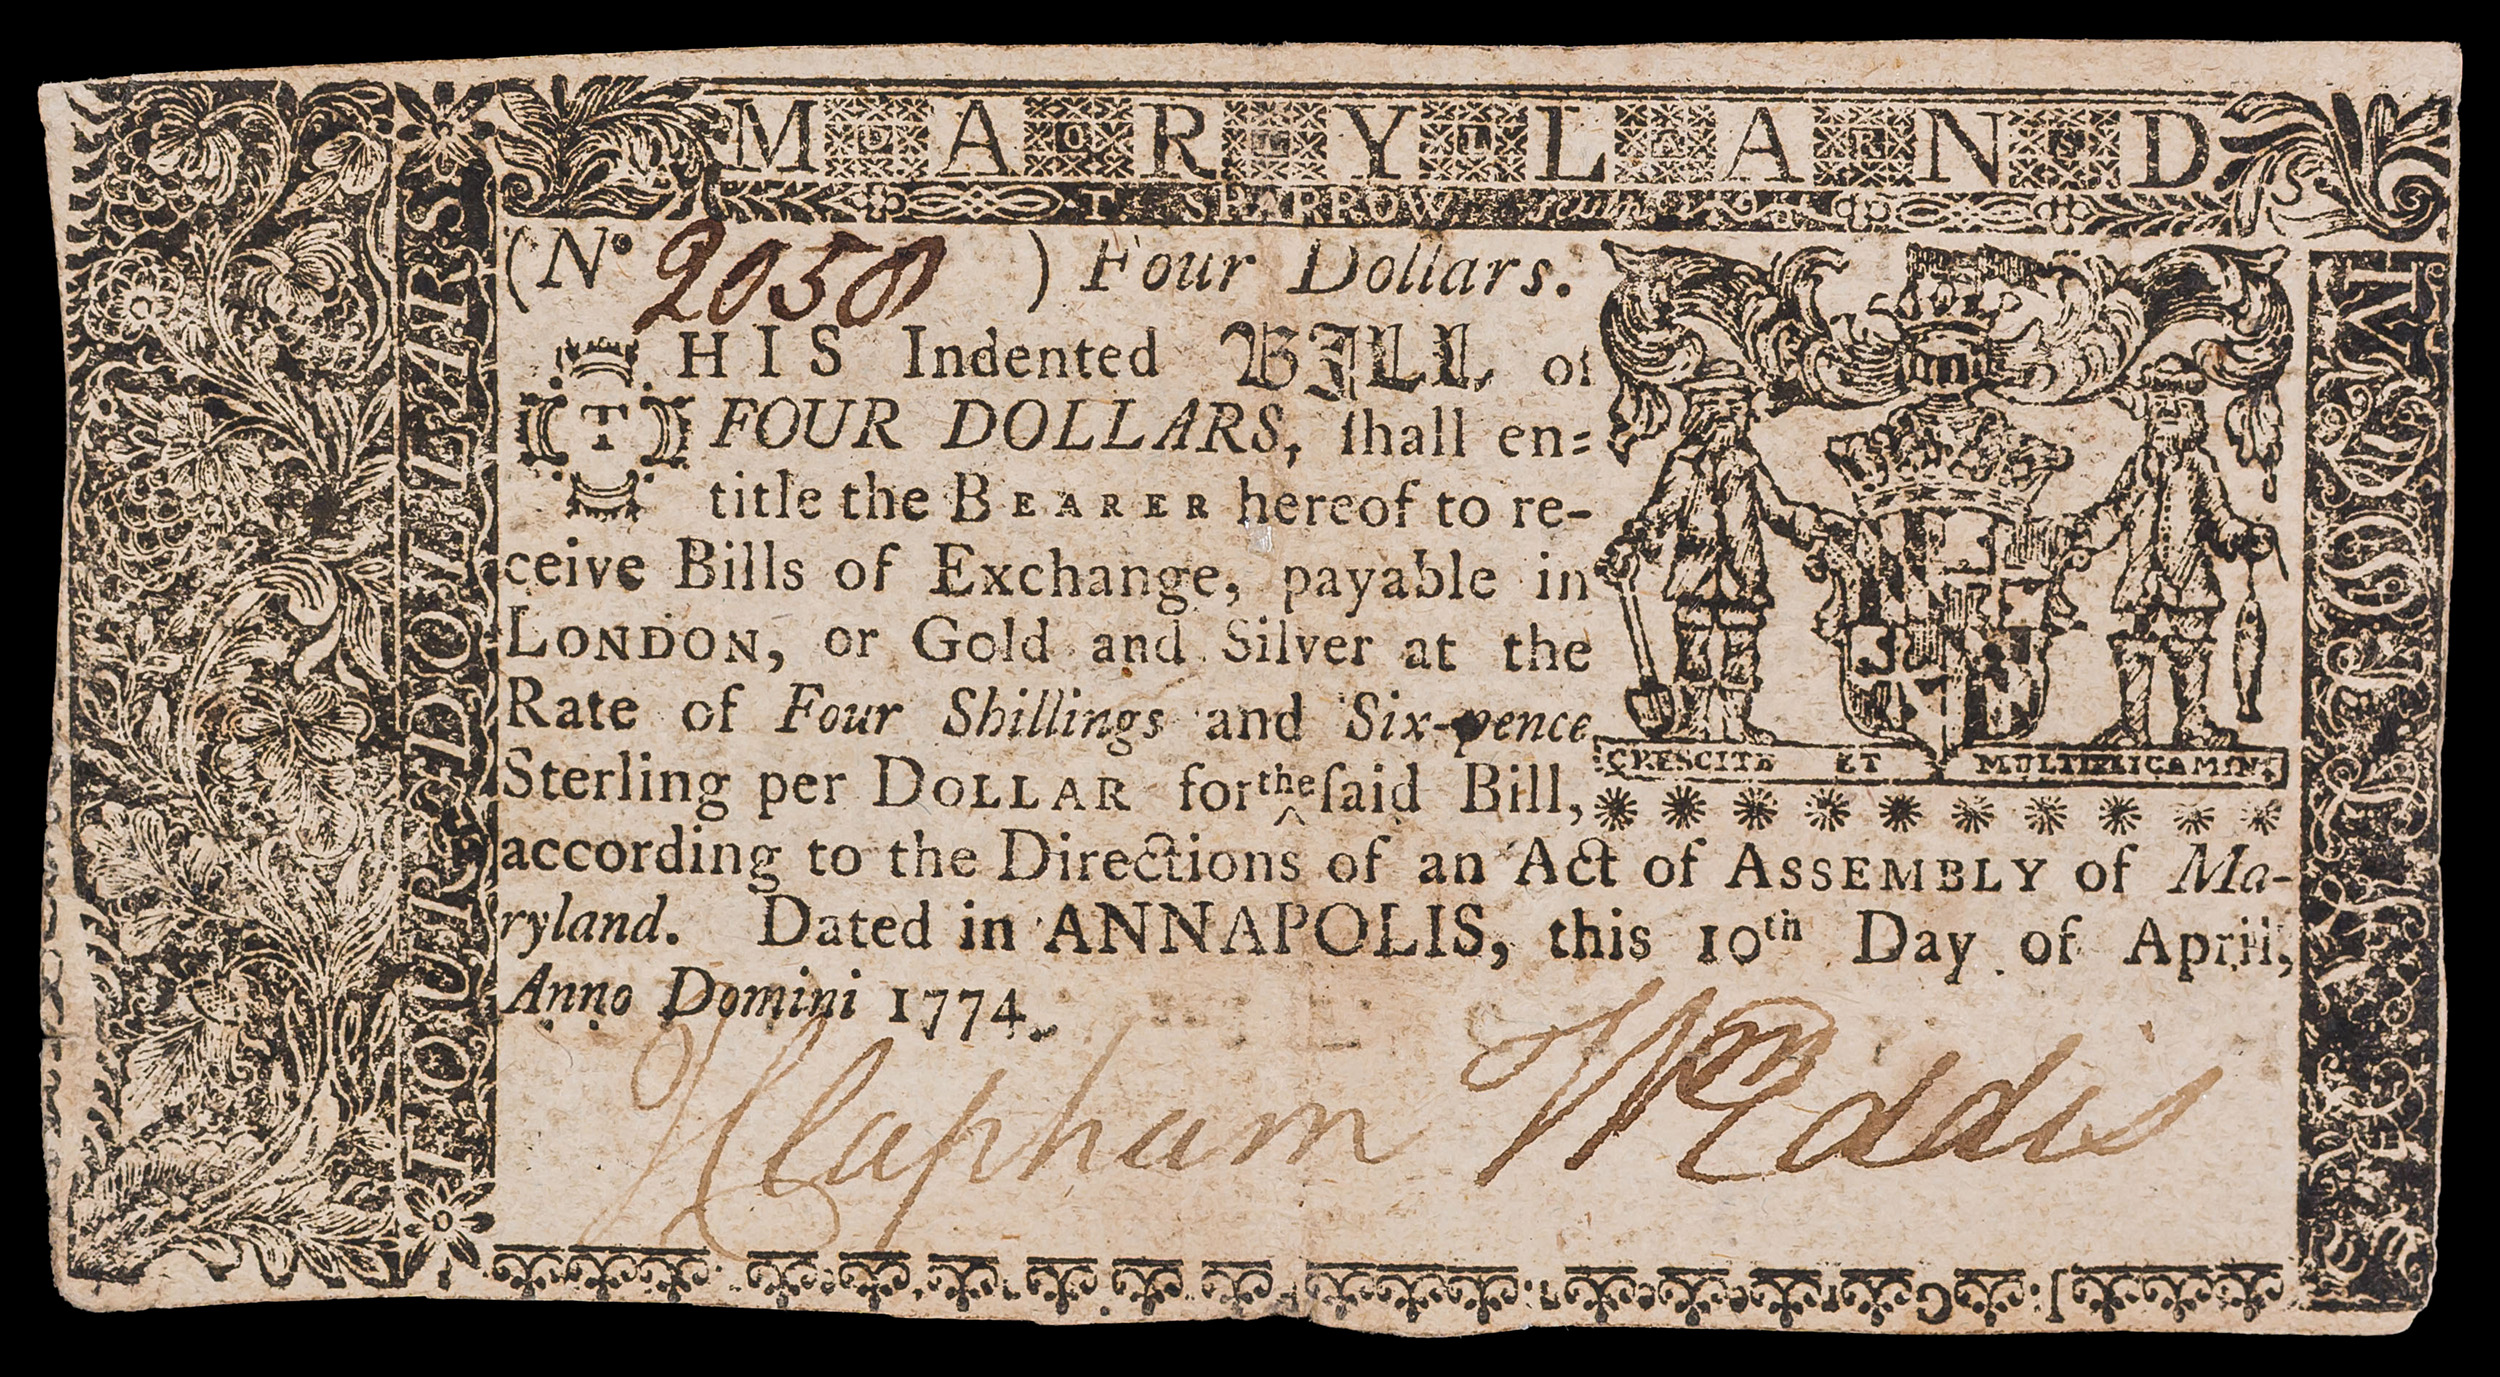 MARYLAND
DOLLARS
T. SPARROW
(No. 2058) Four Dollars.
THIS Indented BILL of
FOUR DOLLARS, ſhall en=
title the BEARER hereof to re-
ceive Bills of Exchange, payable in
LONDON, or Gold and Silver at the
Rate of Four Shillings and Six-pence
Sterling per DOLLAR for the ‸ ſaid Bill,
according to the Directions of an Act of ASSEMBLY of Ma-
ryland. Dated in ANNAPOLIS, this 10th Day of April,
Anno Domini 1774.
J Clapham Wm Eddis
FOUR DOLLARS
CRESCITE ET MULTIPLICAMINI
IV